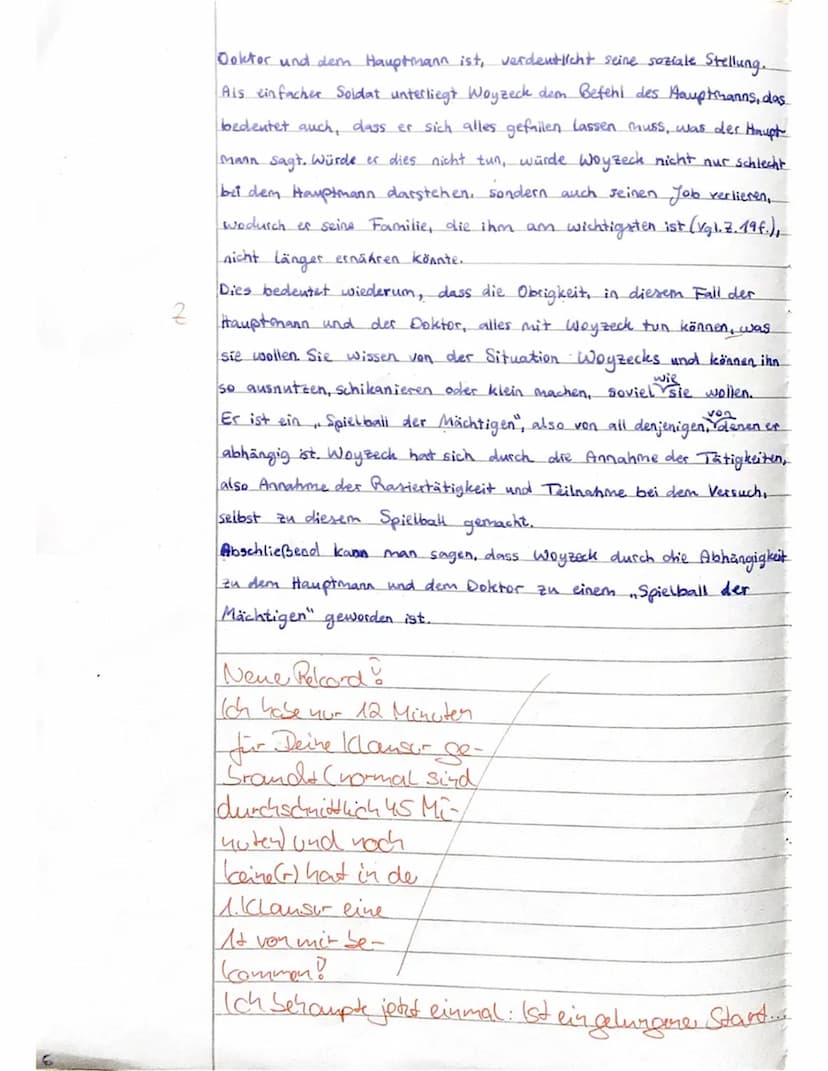 Doktor und dem Hauptmann ist, verdeutlicht seine soziale Stellung.
Als einfacher Soldat unterliegt Woyzeck dem Befehl des Hauptmanns, das
bedeutet auch, dass er sich alles gefallen lassen muss, was der Haupt-
mann sagt. Würde er dies nicht tun, würde Woyzeck nicht nur schlecht
bei dem Hauptmann darstehen, sondern auch seinen Job verlieren,
wodurch er seine Familie, die ihm am wichtigsten ist (Vgl. Z. 19f.),
nicht länger ernähren könnte.
Dies bedeutet wiederum, dass die Obrigkeit, in diesem Fall der
Z
Hauptmann und der Doktor, alles mit Woyzeck tun können, was
sie wollen. Sie wissen von der Situation Woyzecks und können ihn
so ausnutzen, schikanieren oder klein machen, soviel wie sie wollen.
Er ist ein „Spielball der Mächtigen", also von all denjenigen, von denen er
abhängig ist. Woyzeck hat sich durch die Annahme der Tätigkeiten,
also Annahme der Rasiertätigkeit und Teilnahme bei dem Versuch,
selbst zu diesem Spielball gemacht.
Abschließend kann man sagen, dass Woyzeck durch die Abhängigkeit
zu dem Hauptmann und dem Doktor zu einem „Spielball der
Mächtigen" geworden ist.
Neue Rekord!
Ich habe nur 12 Minuten
für Deine Klausur ge-
braucht (normal sind
durchschnittlich 45 Mi-
nuten) und noch
keine(r) hat in de
1. Klausur eine
1+ von mir be-
kommen!
Ich behaupte jetzt einmal: Ist ein gelungener Start...
6